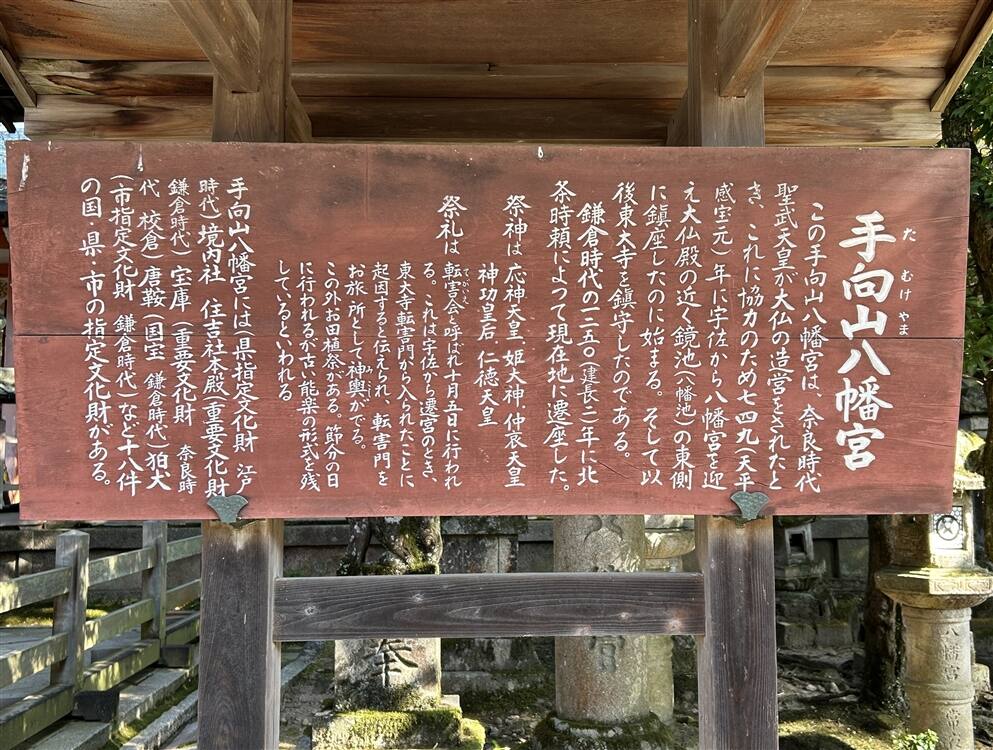 手向山八幡宮
たむけやま
この手向山八幡宮は、奈良時代
聖武天皇が大仏の造営をされたと
き、これに協力のため七四九(天平
感宝元)年に宇佐から八幡宮を迎
え大仏殿の近く鏡池(八幡池)の東側
に鎮座したのに始まる。そして以
後東大寺を鎮守したのである。
鎌倉時代の一二五〇(建長二)年に北
条時頼によつて現在地に遷座した。
祭神は 応神天皇、姫大神、仲哀天皇
神功皇后、仁徳天皇
祭礼は 転害会と呼ばれ十月五日に行われ
てがいえ
る。これは宇佐から遷宮のとき、
東大寺転害門から入られたことに
起因すると伝えられ、転害門を
お旅所として神輿がでる。
みこし
この外お田植祭がある。節分の日
に行われるが古い能楽の形式を残
しているといわれる
手向山八幡宮には(県指定文化財 江戸
時代)境内社 住吉社本殿(重要文化財
鎌倉時代)宝庫(重要文化財 奈良時
代 校倉)唐鞍(国宝 鎌倉時代)狛犬
(市指定文化財 鎌倉時代)など十八件
の国・県・市の指定文化財がある。
奉
宮
八幡宮
常